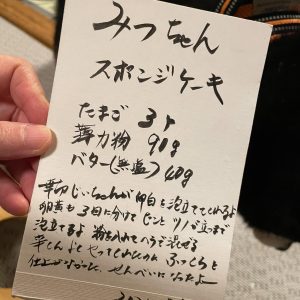 みっちゃん
スポンジケーキ
たまご 3ヶ
薄力粉 90g
バター(無塩)40g
じいちゃんが卵白を泡立ててくれるよ
卵黄も3回に分けて ピンと ツノが立つまで
泡立てるよ 粉を入れてヘラで混ぜる
やってしまいに ふっくらと
せんべいになったよ